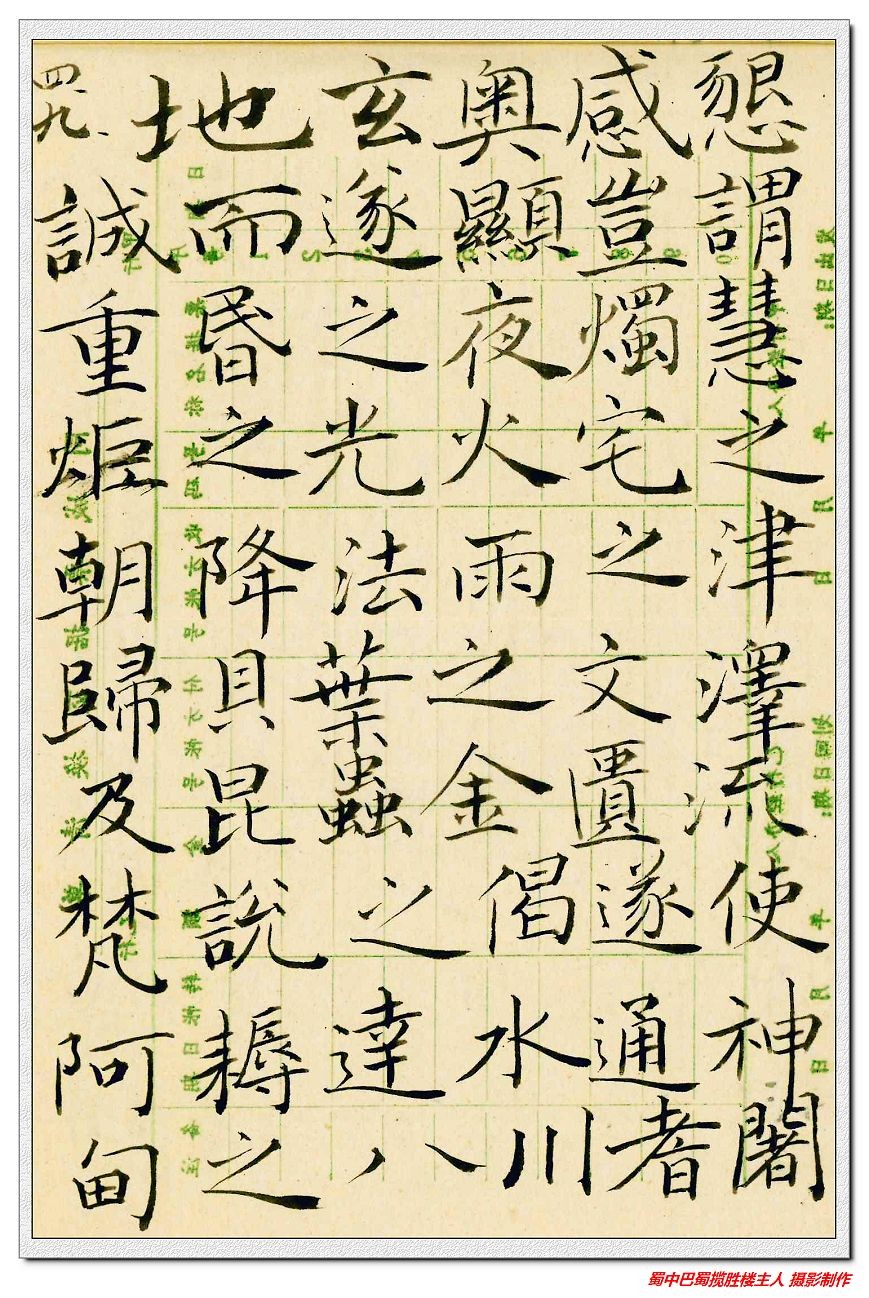 懇謂慧之津澤流使神闍
感豈燭宅之文匱遂通者
奧顯夜火雨之金偈水川
玄遂之光法葉蟲之達八
地而昬之降貝昆說耨之
四九
誠重炬朝歸及梵阿甸
蜀中巴蜀揽胜楼主人 摄影制作